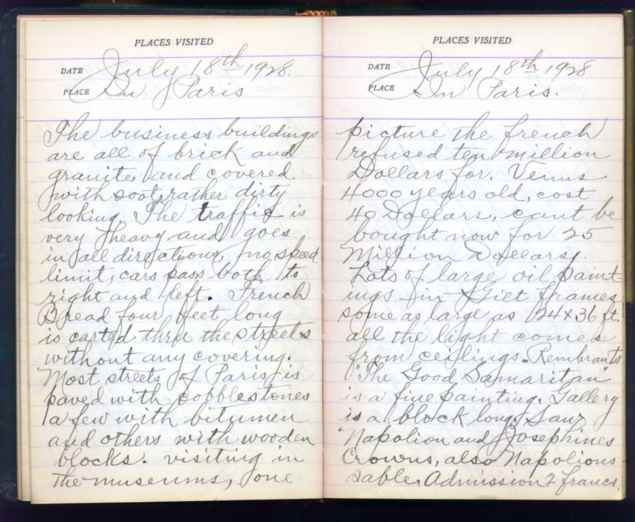 PLACES VISITED
DATE July 18th 1928.
PLACE In Paris
The business buildings
are all of brick and
granite and covered
with soot, rather dirty
looking. The traffic is
very heavy and goes
in all directions, no speed
limit, cars pass both to
right and left. French
Bread four feet long
is cart'd thru the streets
without any covering.
Most streets of Paris is
paved with cobblestones
a few with bitumen
and others with wooden
blocks. visiting in
the museums, one
PLACES VISITED
DATE July 18th 1928
PLACE In Paris.
picture the french
refused ten million
Dollars for. Venus
4000 years old, cost
40 Dollars, cant be
bought now for 25
Million Dollars.
Lots of large oil paint
ings in Giet frames
some as large as 24x36 ft.
all the light comes
from ceilings. Rembrants
"The Good Samaritan"
is a fine painting. Gallery
is a block long. Saw
Napolion and Josephines
Crowns, also Napolions
Sable. Admission 2 francs.